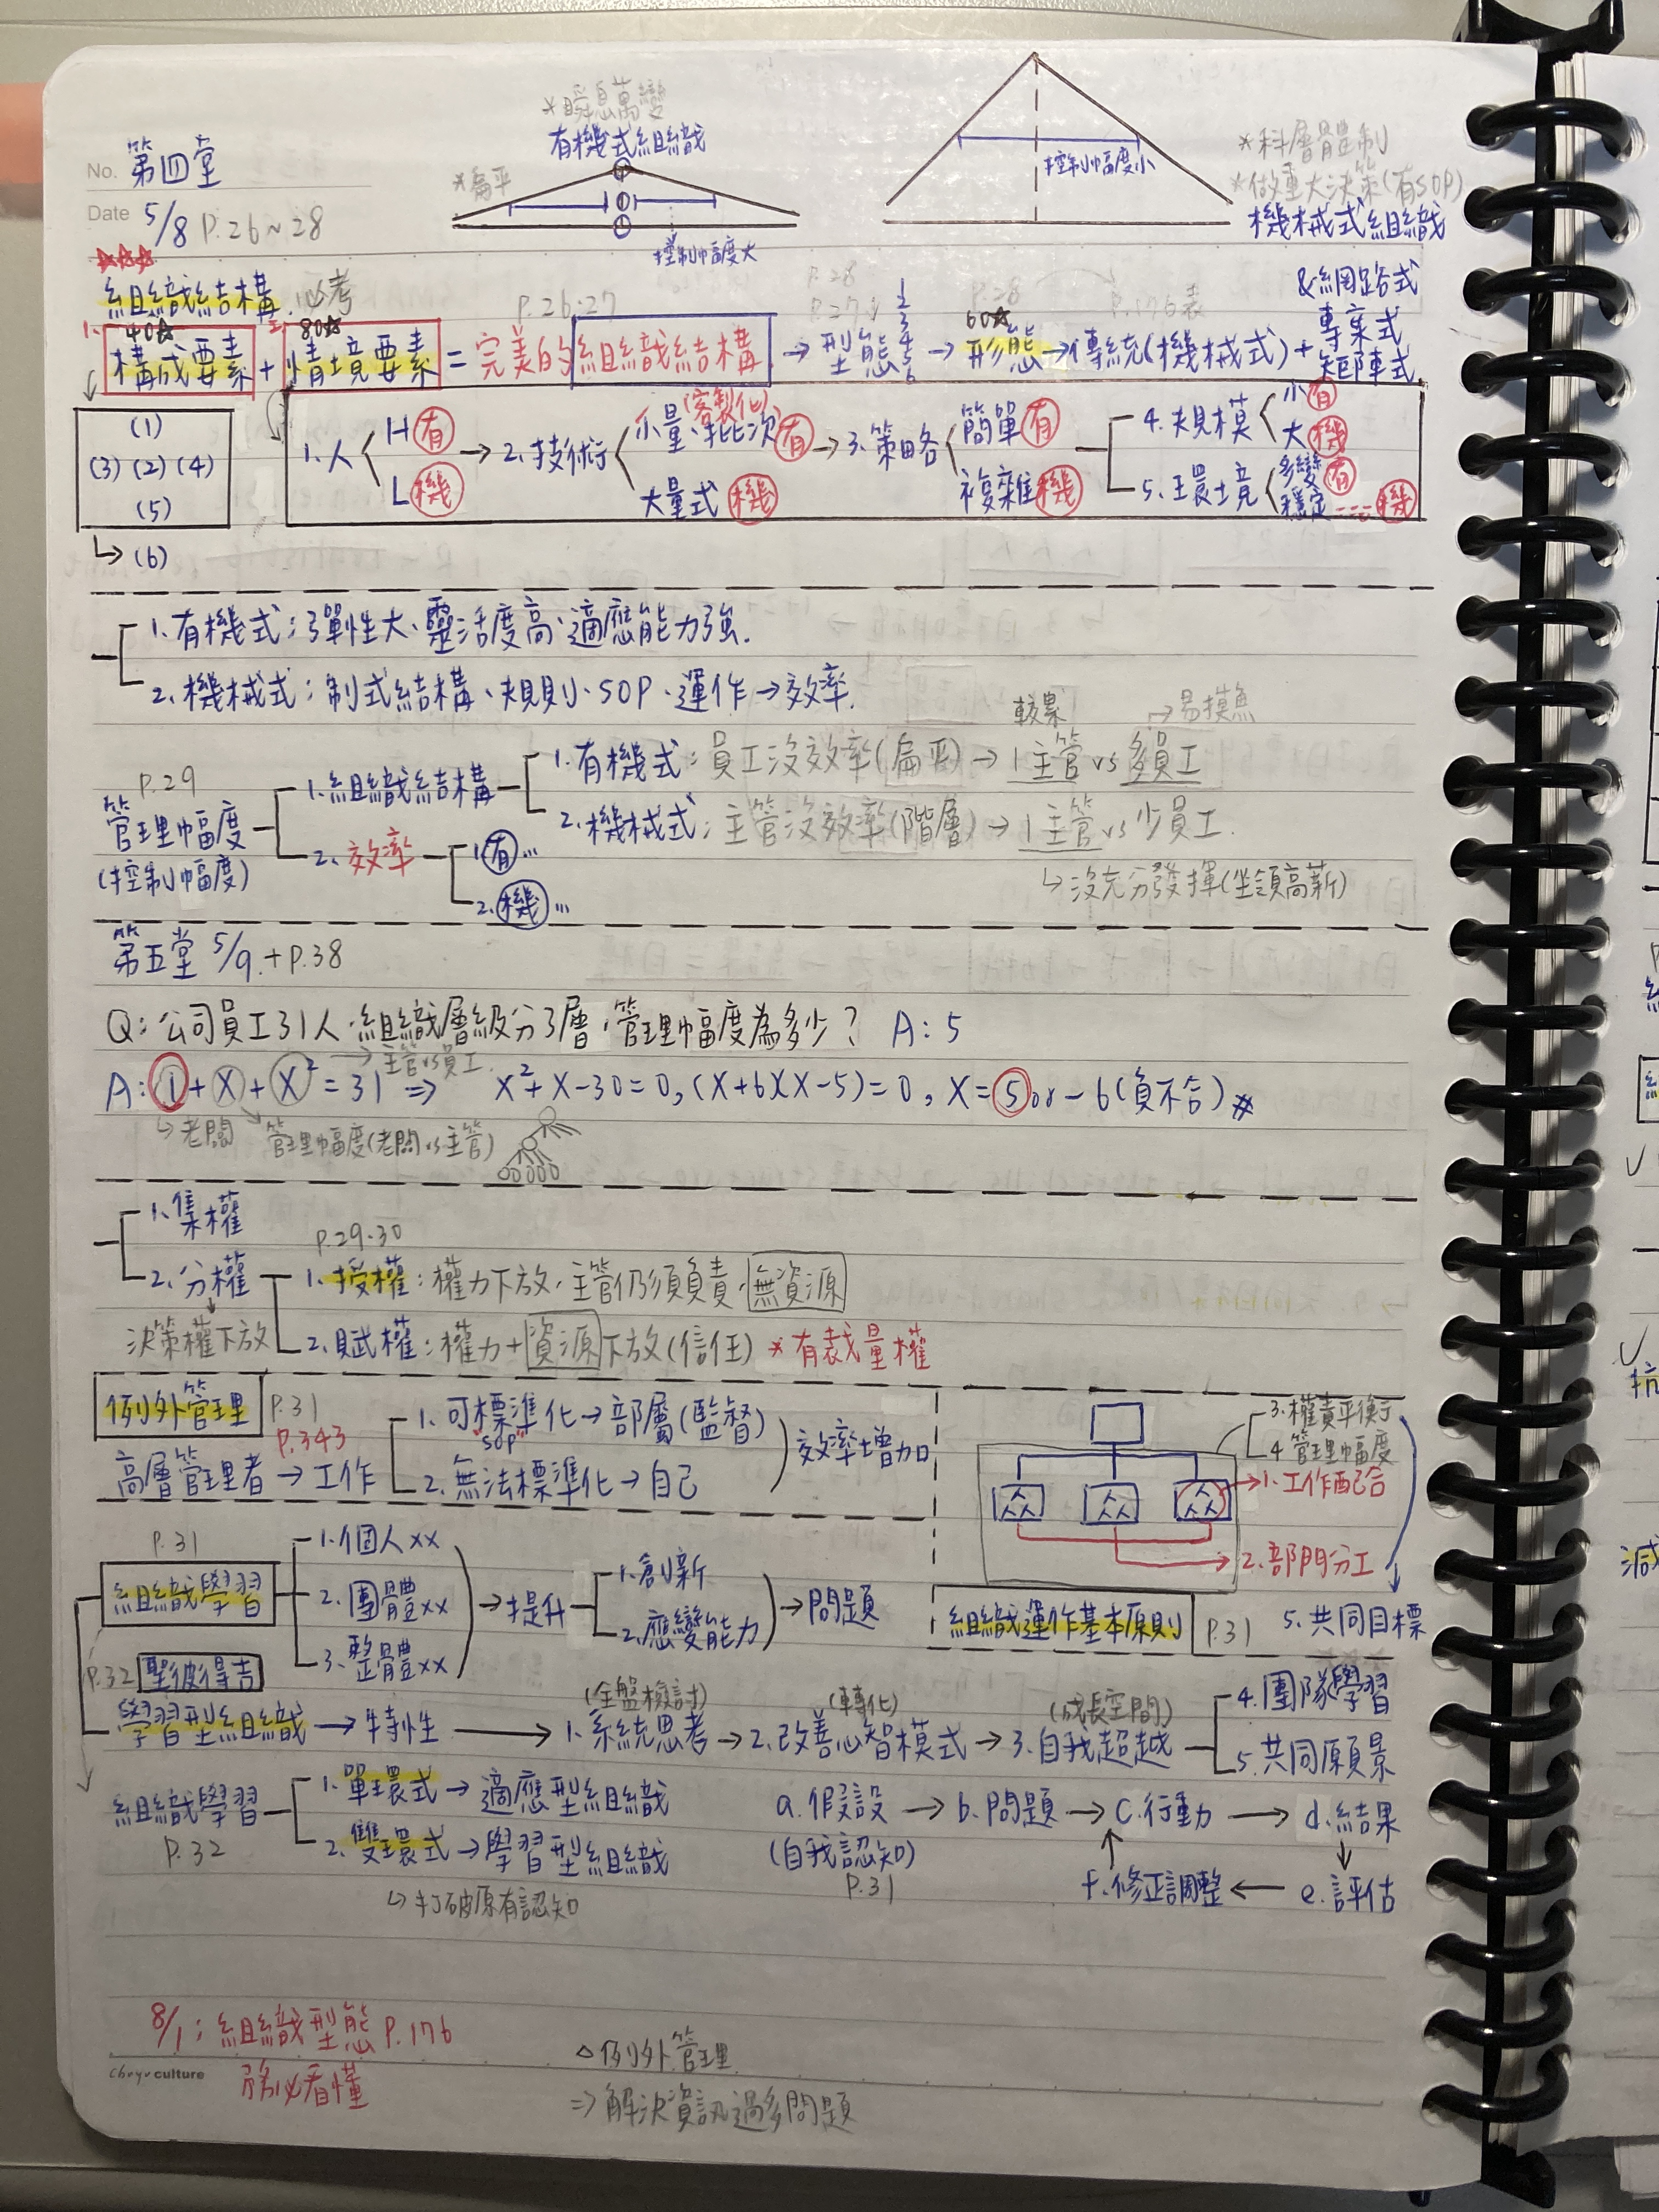 *瞬息萬變
有機式組織
*扁平
控制幅度大
控制幅度小
*科層體制
*做重大決策(有SOP)
機械式組織
&網路式
專案式
矩陣式
No. 第四堂
Date 5/8 P.26~28
☆☆☆
組織結構 必考
P.26.27
P.28
P.27
1 2 3 4 5 6
P.28
P.176表
1. 40☆ 2. 80☆ 60☆
構成要素+情境要素=完美的組織結構→型態→形態→傳統(機械式)+
(1)
(3) (2) (4)
(5)
↳(6)
1.人 H有 L機
→2.技術 小量、批次有 (客製化) 大量式機
→3.策略 簡單有 複雜機
4.規模 小有 大機
5.環境 多變有 穩定---機
1.有機式:彈性大、靈活度高、適應能力強.
2.機械式:制式結構、規則、SOP、運作→效率.
較累 →易摸魚
P.29
管理幅度
(控制幅度)
1.組織結構
1.有機式:員工沒效率(扁平)→1主管vs多員工
2.機械式:主管沒效率(階層)→1主管vs少員工.
↳沒充分發揮(坐領高薪)
2.效率
1.有…
2.機…
第五堂 5/9.+P.38
Q:公司員工31人、組織層級分3層、管理幅度為多少? A:5
→主管vs員工.
A:1+X+X²=31 ⇒ X²+X-30=0,(X+6)(X-5)=0, X=5or-6(負不合)#
↳老闆 管理幅度(老闆vs主管)
1.集權
P.29.30
2.分權
決策權下放
1.授權:權力下放、主管仍須負責、無資源
2.賦權:權力+資源下放(信任) *有裁量權
例外管理 P.31
P.343
高層管理者→工作
1.可標準化→部屬(監督)
"SOP"
2.無法標準化→自己
效率增加
3.權責平衡
4.管理幅度
1.工作配合
2.部門分工
組織運作基本原則 P.31 5.共同目標
P.31
組織學習
1.個人xx
2.團體xx
3.整體xx
→提升
1.創新
2.應變能力
→問題
P.32 聖彼得吉
(全盤檢討) (轉化) (成長空間)
學習型組織→特性→1.系統思考→2.改善心智模式→3.自我超越
4.團隊學習
5.共同願景
組織學習
P.32
1.單環式→適應型組織
2.雙環式→學習型組織
↳打破原有認知
a.假設→b.問題→c.行動→d.結果
(自我認知)
P.31
f.修正調整←e.評估
8/1:組織型態P.176
務必看懂
△例外管理
⇒解決資訊過多問題
culture
抗
減